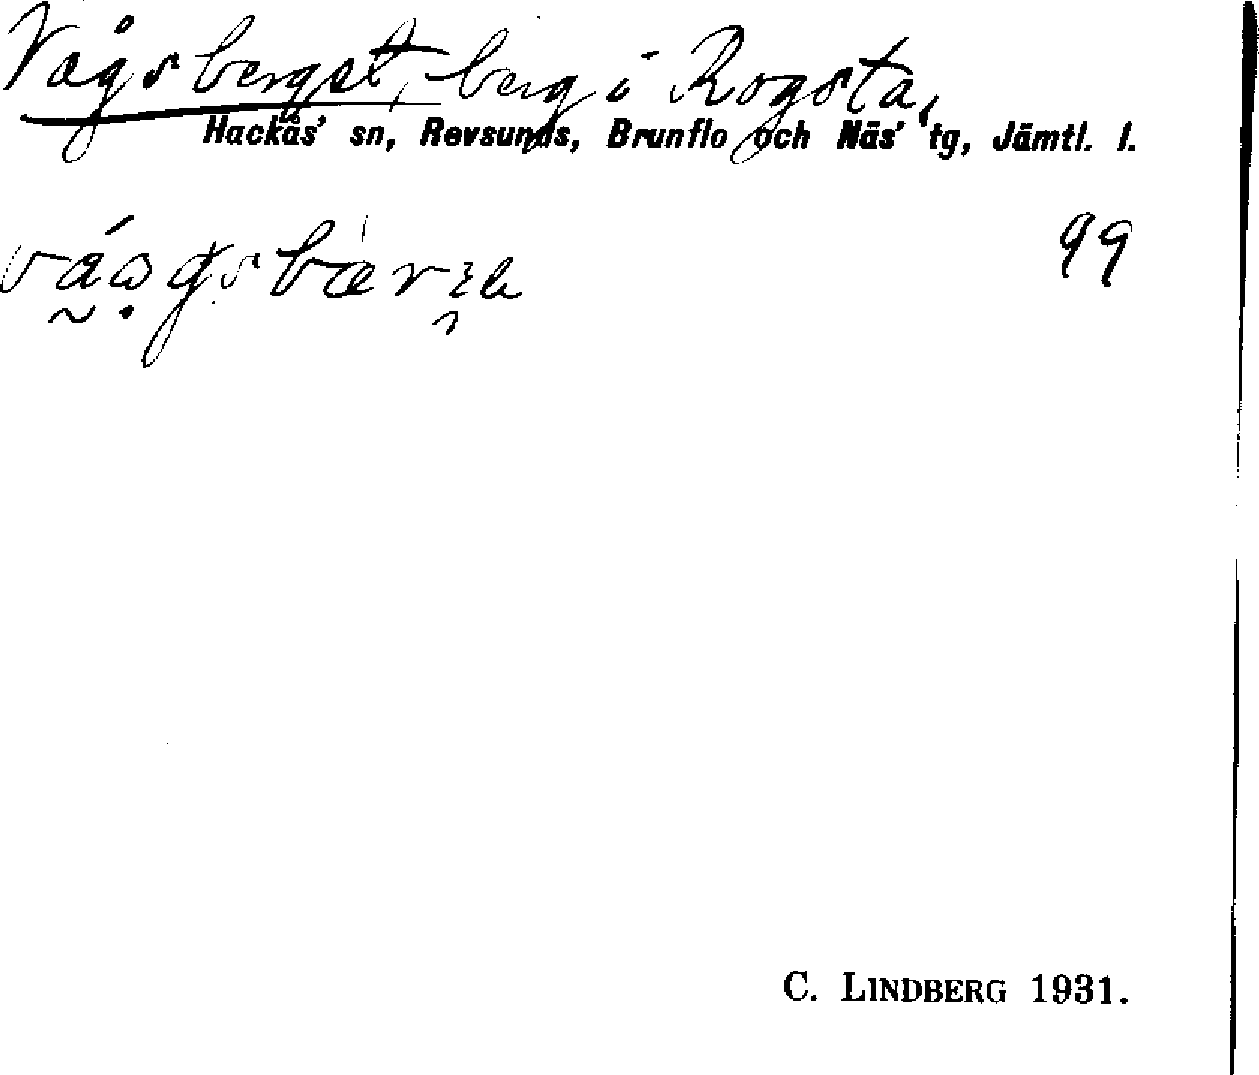 Vågsberget, berg i Rogsta,
Hackås' sn, Revsunds, Brunflo och Näs' tg, Jämtl. l.
99
C. LINDBERG 1931.